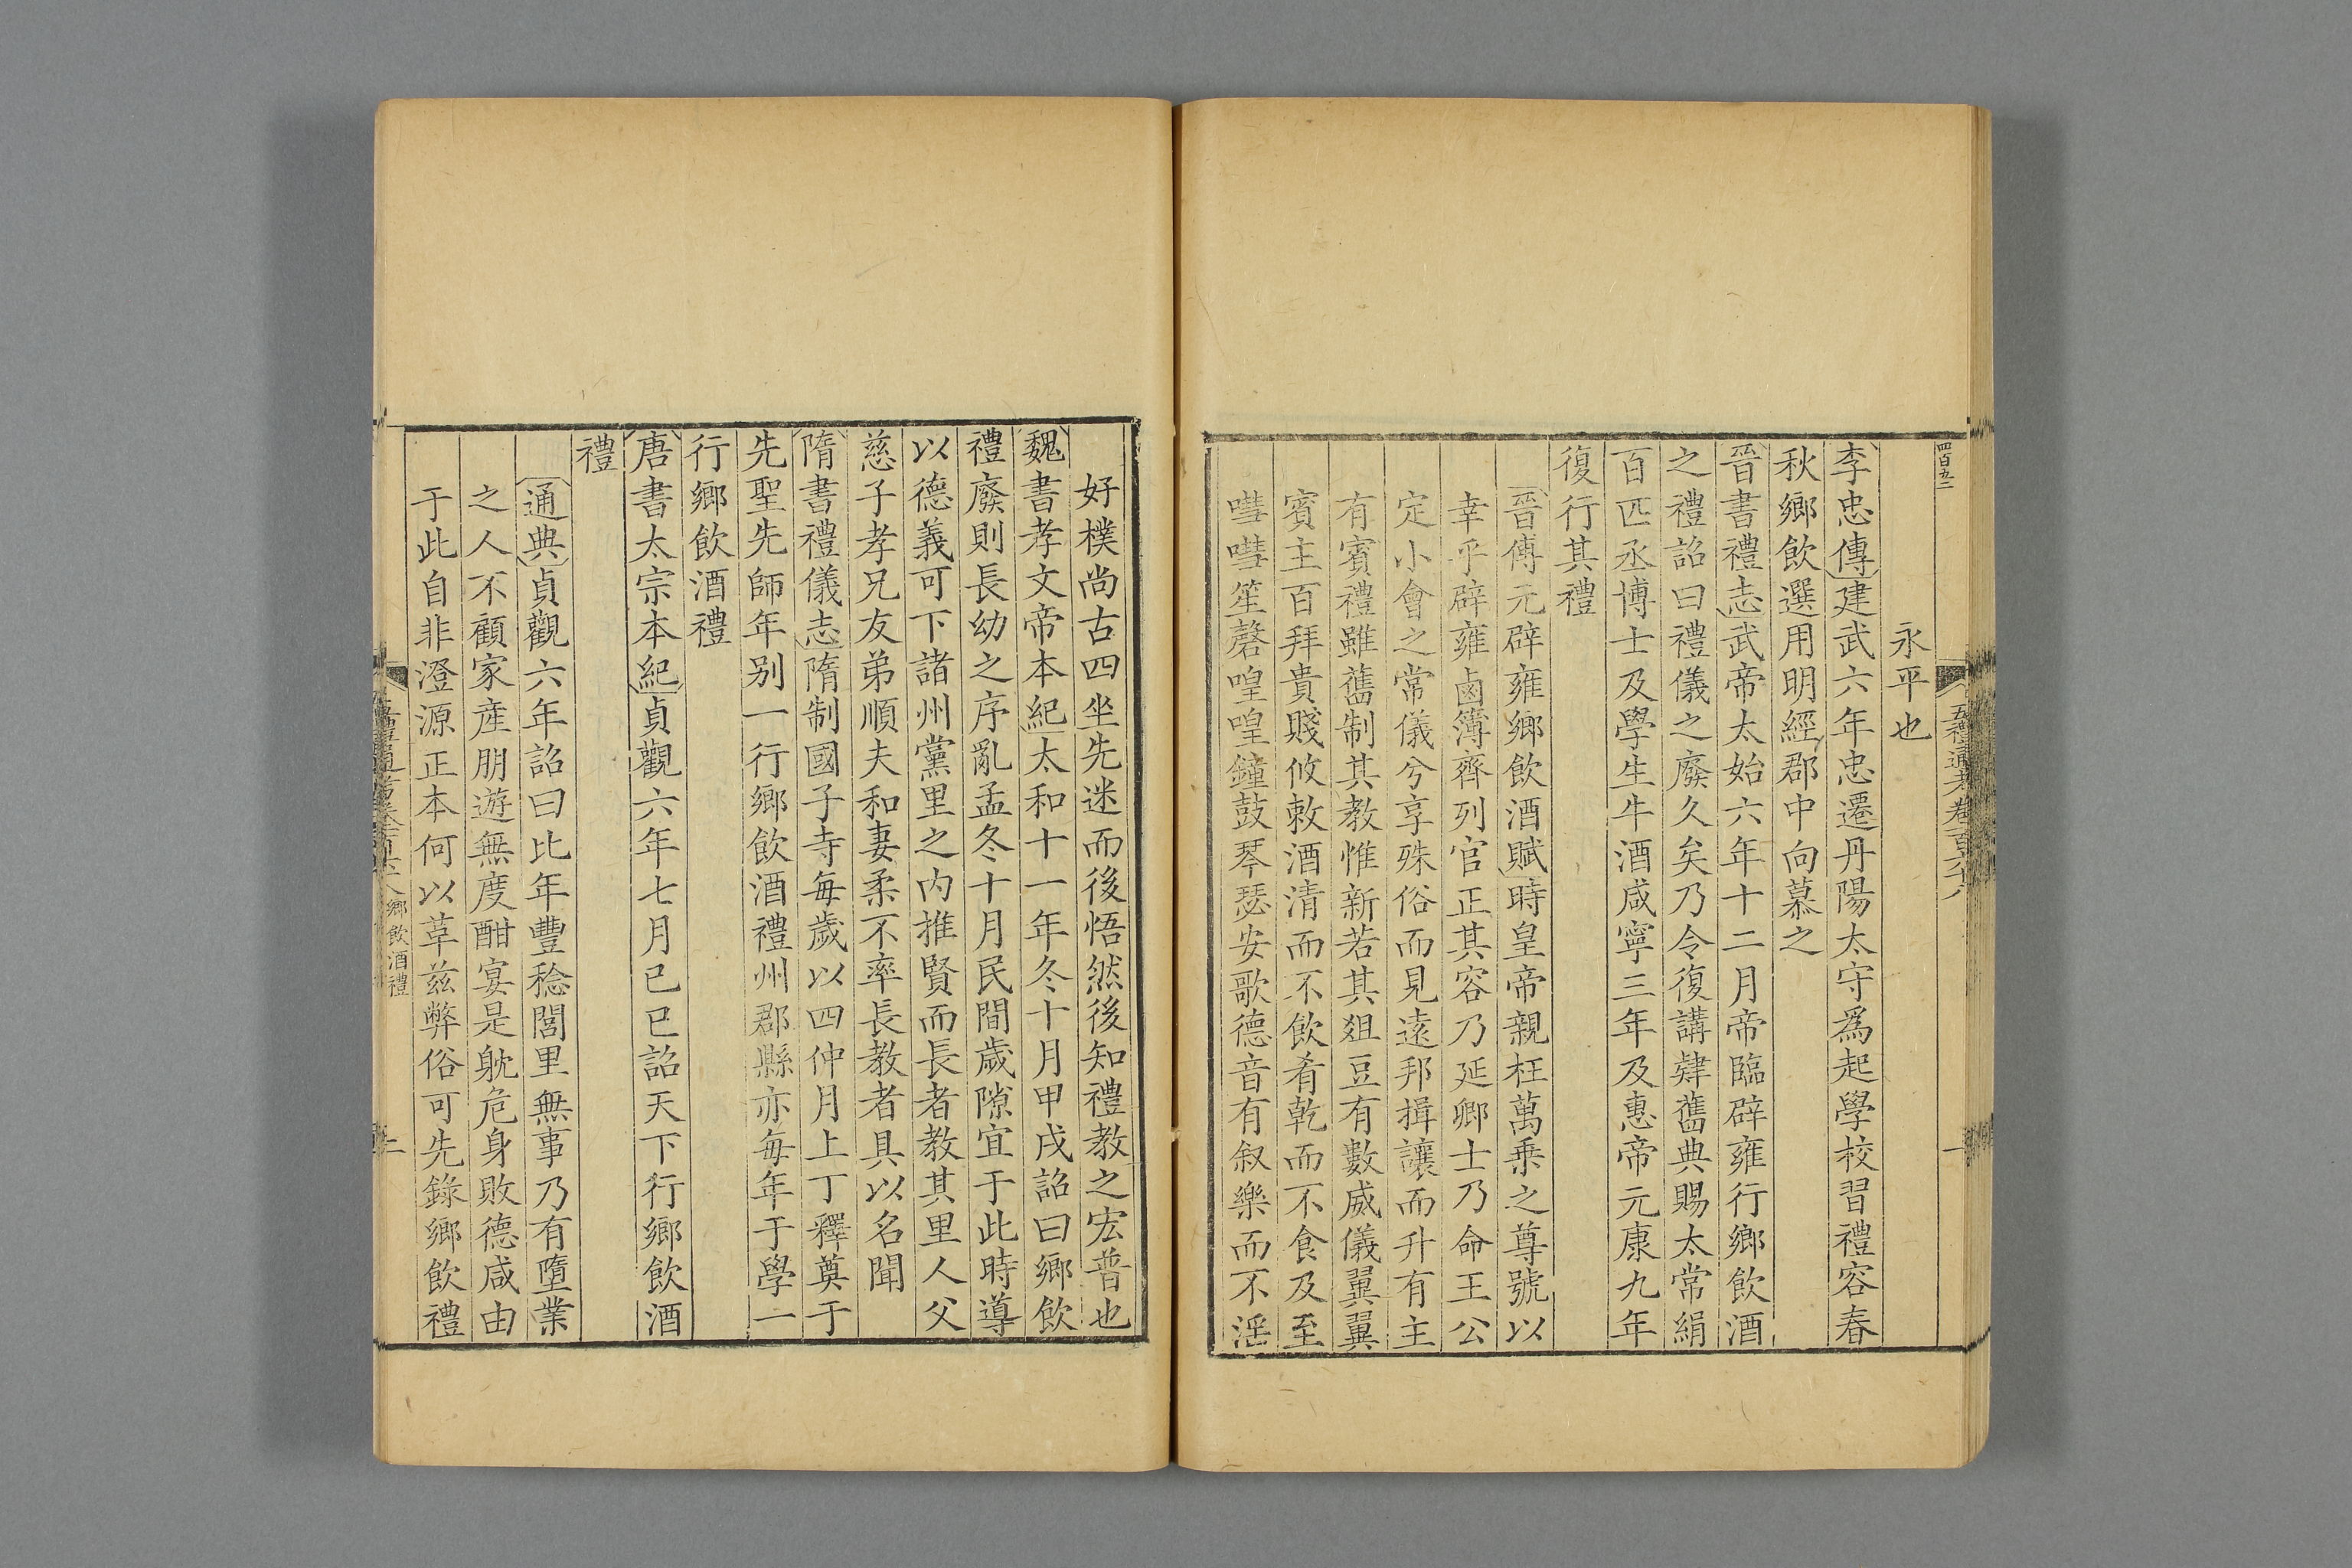 四百九二
五禮通考卷一百六十八
一
永平也
李忠傳建武六年忠遷丹陽太守爲起學校習禮容春
秋鄉飲選用明經郡中向慕之
晉書禮志武帝太始六年十二月帝臨辟雍行鄉飲酒
之禮詔曰禮儀之廢久矣乃今復講肄舊典賜太常絹
百匹丞博士及學生牛酒咸寧三年及惠帝元康九年
復行其禮
晉傅元辟雍鄉飲酒賦時皇帝親枉萬乘之尊號以
幸乎辟雍鹵簿齊列官正其容乃延卿士乃命王公
定小會之常儀兮享殊俗而見遠邦揖讓而升有主
有賓禮雖舊制其教惟新若其俎豆有數威儀翼翼
賓主百拜貴賤攸敕酒清而不飲肴乾而不食及至
嘒嘒笙磬喤喤鐘鼓琴瑟安歌德音有叙樂而不淫
好樸尚古四坐先迷而後悟然後知禮教之宏普也
魏書孝文帝本紀太和十一年冬十月甲戌詔曰鄉飲
禮廢則長幼之序亂孟冬十月民間歲隙宜于此時導
以德義可下諸州黨里之内推賢而長者教其里人父
慈子孝兄友弟順夫和妻柔不率長教者具以名聞
隋書禮儀志隋制國子寺每歲以四仲月上丁釋奠于
先聖先師年别一行鄉飲酒禮州郡縣亦每年于學一
行鄉飲酒禮
唐書太宗本紀貞觀六年七月己巳詔天下行鄉飲酒
禮
通典貞觀六年詔曰比年豐稔閭里無事乃有墮業
之人不顧家産朋遊無度酣宴是躭危身敗德咸由
于此自非澄源正本何以革兹弊俗可先錄鄉飲禮
鄉飲酒禮
二